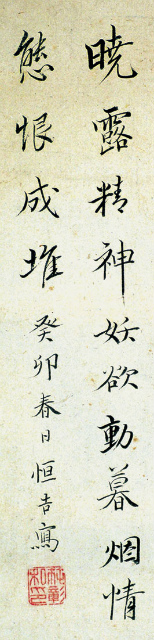 曉露精神妖欲動暮烟情
態恨成堆 癸卯春日恒吉寫